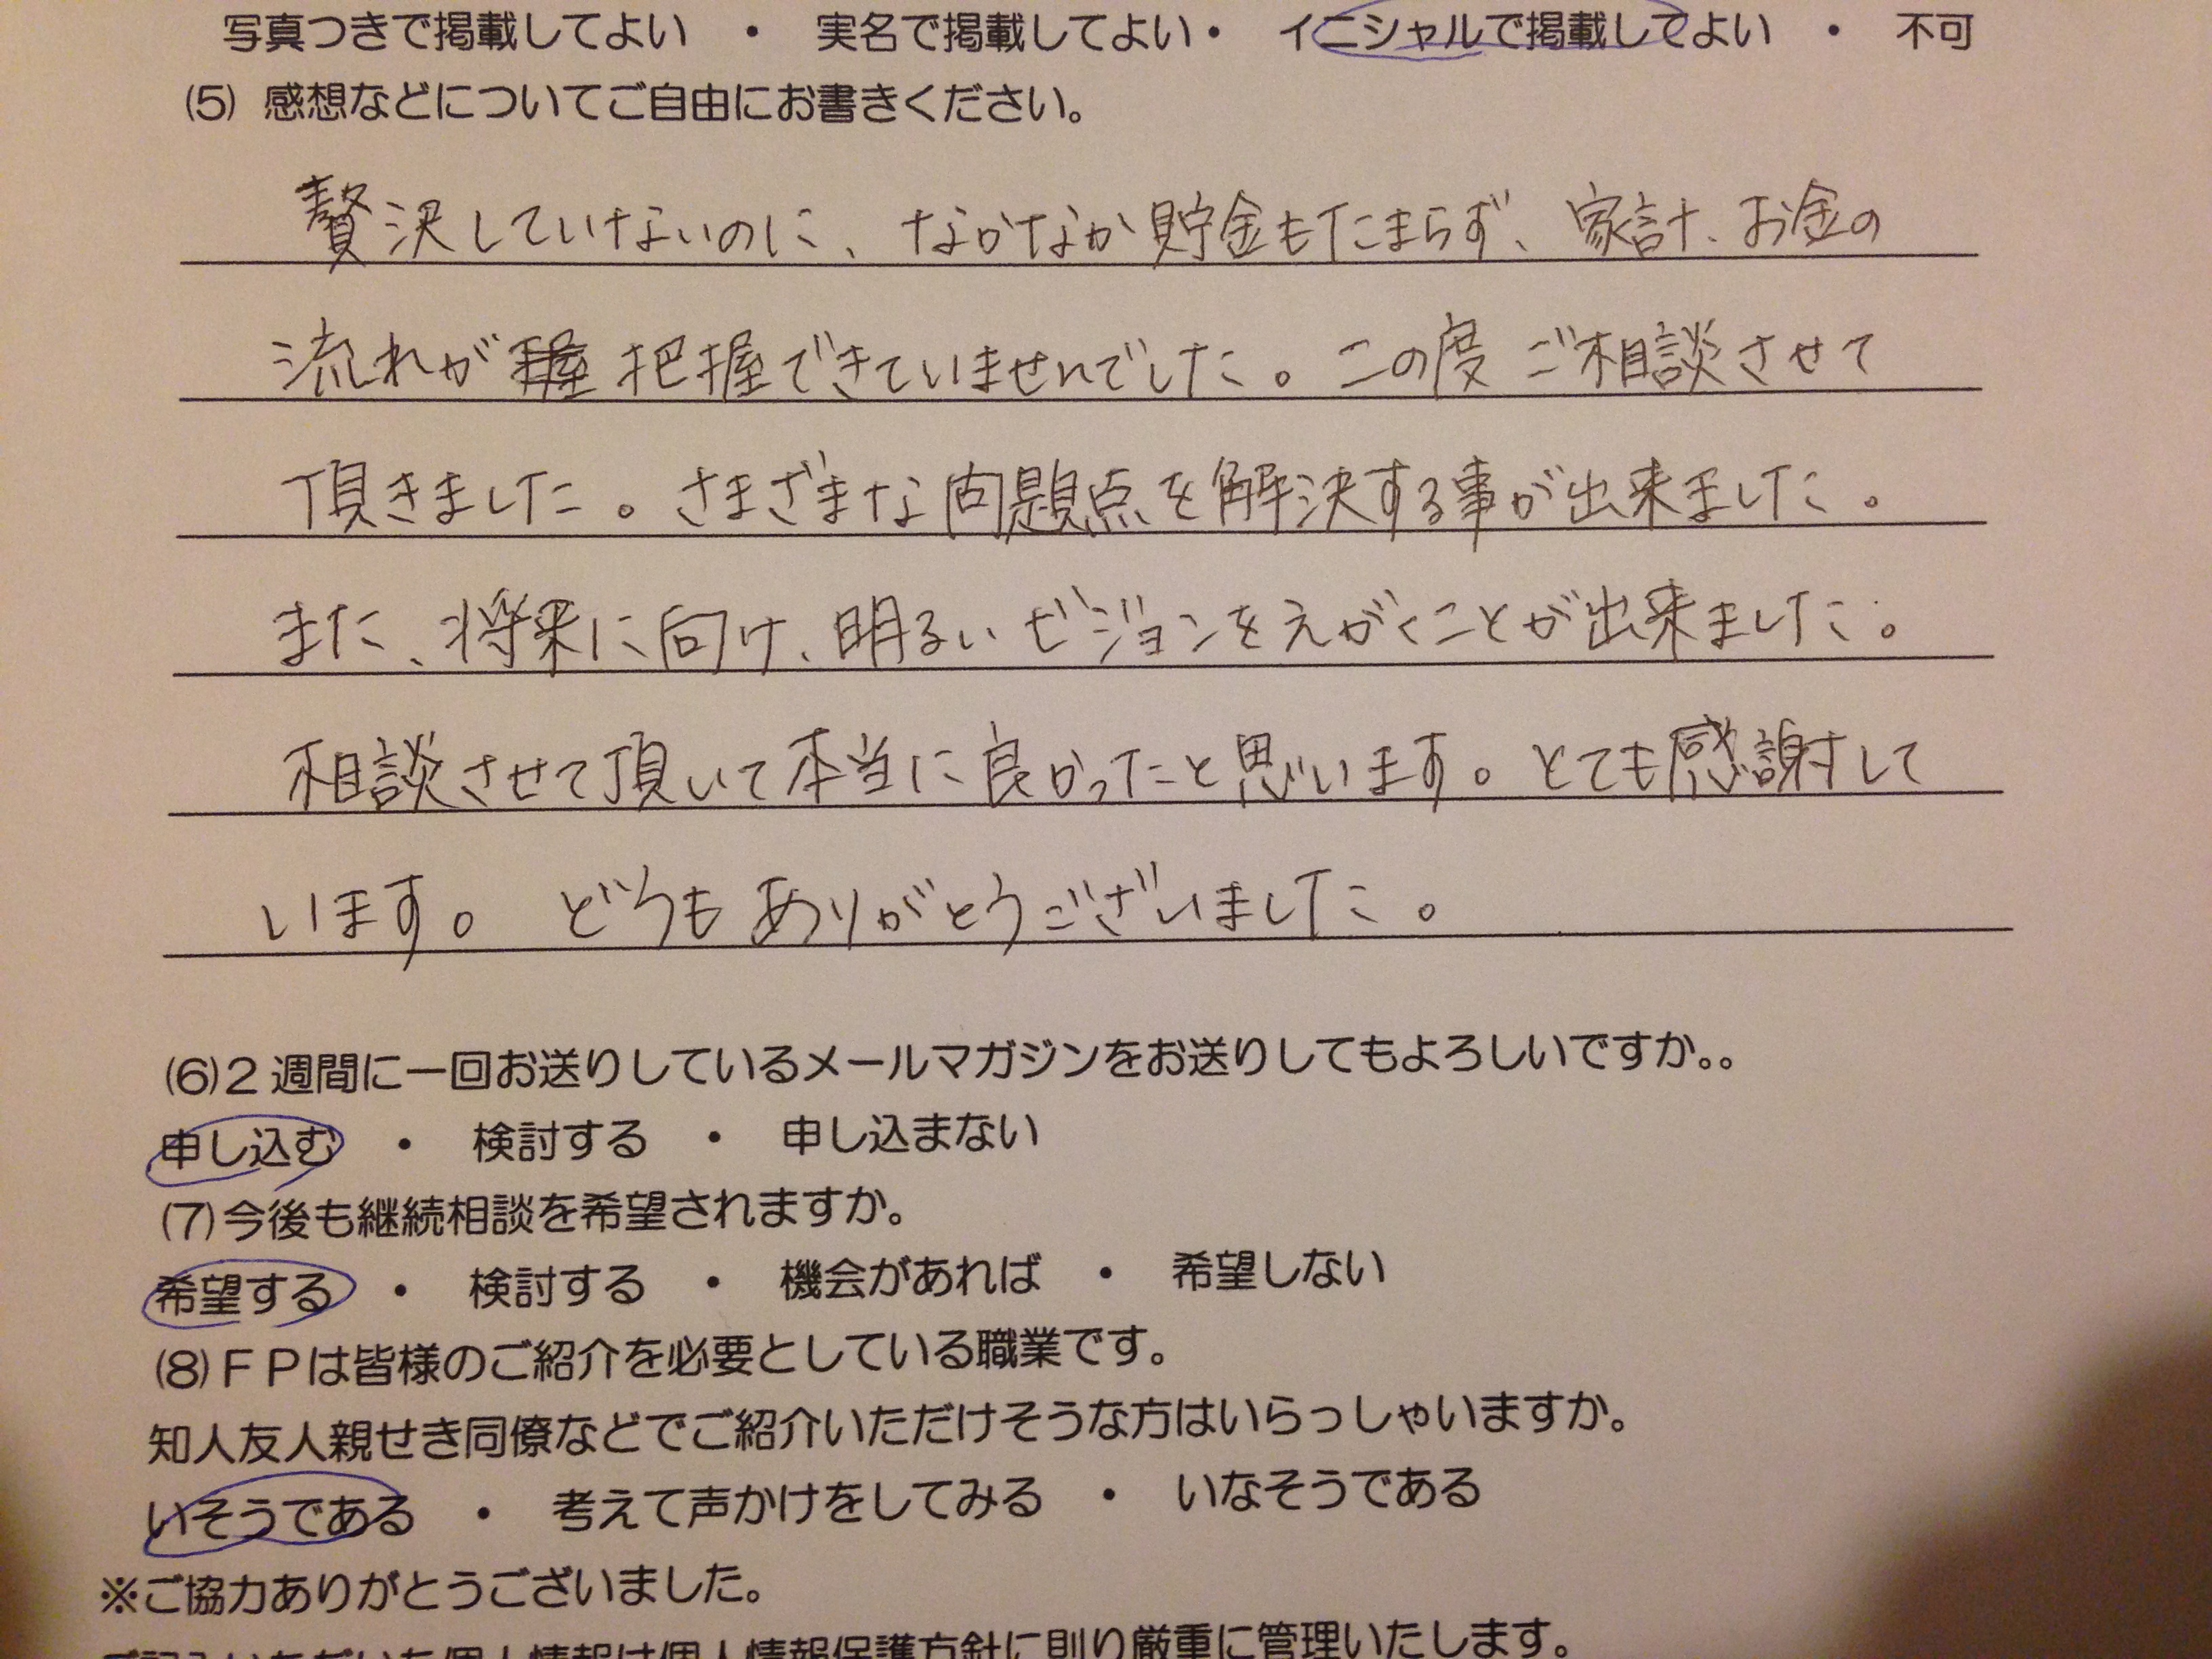 写真つきで掲載してよい ・ 実名で掲載してよい・ イニシャルで掲載してよい ・ 不可
(5) 感想などについてご自由にお書きください。
贅沢していないのに、なかなか貯金もたまらず、家計、お金の
流れが 把握できていませんでした。この度 ご相談させて
頂きました。さまざまな問題点を解決する事が出来ました。
また、将来に向け、明るいビジョンをえがくことが出来ました。
相談させて頂いて本当に良かったと思います。とても感謝して
います。 どうもありがとうございました。
(6)2週間に一回お送りしているメールマガジンをお送りしてもよろしいですか。。
申し込む ・ 検討する ・ 申し込まない
(7)今後も継続相談を希望されますか。
希望する ・ 検討する ・ 機会があれば ・ 希望しない
(8)ＦＰは皆様のご紹介を必要としている職業です。
知人友人親せき同僚などでご紹介いただけそうな方はいらっしゃいますか。
いそうである ・ 考えて声かけをしてみる ・ いなそうである
※ご協力ありがとうございました。
ご記入いただいた個人情報は個人情報保護方針に則り厳重に管理いたします。